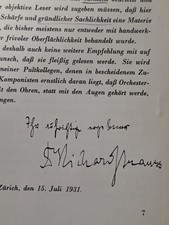 objektive Leser wird zugeben müssen, daß hier
Schärfe und gründlicher Sachlichkeit eine Materie
die bisher meistens nur entweder mit handwerk-
frivoler Oberflächlichkeit behandelt wurde.
deshalb auch keine weitere Empfehlung mit auf
wünschen, daß sie fleißig gelesen werde. Sie wird
meiner Pultkollegen, denen in bescheidenem
Komponisten ernstlich daran liegt, daß Orchester-
dem Ohr, statt mit den Augen gehört werden.
Dr Richard Strauss
Zürich, den 15. Juli 1931.
7